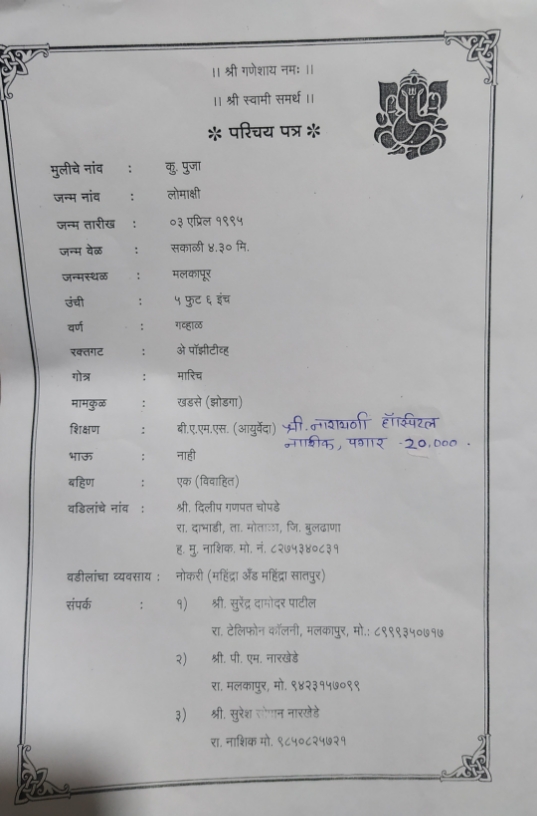 ।। श्री गणेशाय नमः ।।
।। श्री स्वामी समर्थ ।।
परिचय पत्र
मुलीचे नांव : कु. पुजा
जन्म नांव : लोमाक्षी
जन्म तारीख : ०३ एप्रिल १९९५
जन्म वेळ : सकाळी ४.३० मि.
जन्मस्थळ : मलकापूर
उंची : ५ फुट ६ इंच
वर्ण : गव्हाळ
रक्तगट : अे पॉझीटीव्ह
गोत्र : मारिच
मामकुळ : खडसे (झोडगा)
शिक्षण : बी.ए.एम.एस. (आयुर्वेदा) श्री. नारायणी हॉस्पिटल
नाशिक, पगार -20,000.
भाऊ : नाही
बहिण : एक (विवाहित)
वडिलांचे नांव : श्री. दिलीप गणपत चोपडे
रा. दाभाडी, ता. मोताळा, जि. बुलढाणा
ह. मु. नाशिक. मो. नं. ८२७५३४०८३१
वडीलांचा व्यवसाय : नोकरी (महिंद्रा अँड महिंद्रा सातपुर)
संपर्क : १) श्री. सुरेंद्र दामोदर पाटील
रा. टेलिफोन कॉलनी, मलकापुर, मो.: ८९९९३५०७१७
२) श्री. पी. एम. नारखेडे
रा. मलकापुर, मो. ९४२३१५७०९९
३) श्री. सुरेश नारखेडे
रा. नाशिक मो. ९८५०८२५७२१